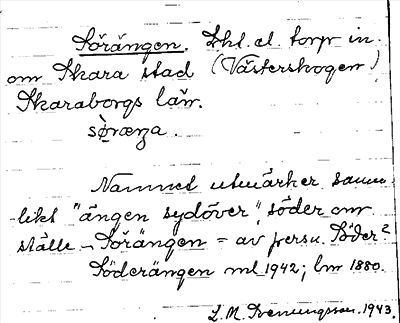 Sörängen. Lht. el. torp in-
om Skara stad (Västerskogen)
Skaraborgs län.
sø̀ræŋa.
Namnet utmärker sanno-
likt "ängen sydöver", söder om
ställe – Sörängen = av persn. Söder?
Söderängen ml 1942; lm 1880.
L. M. Svenungsson. 1943.